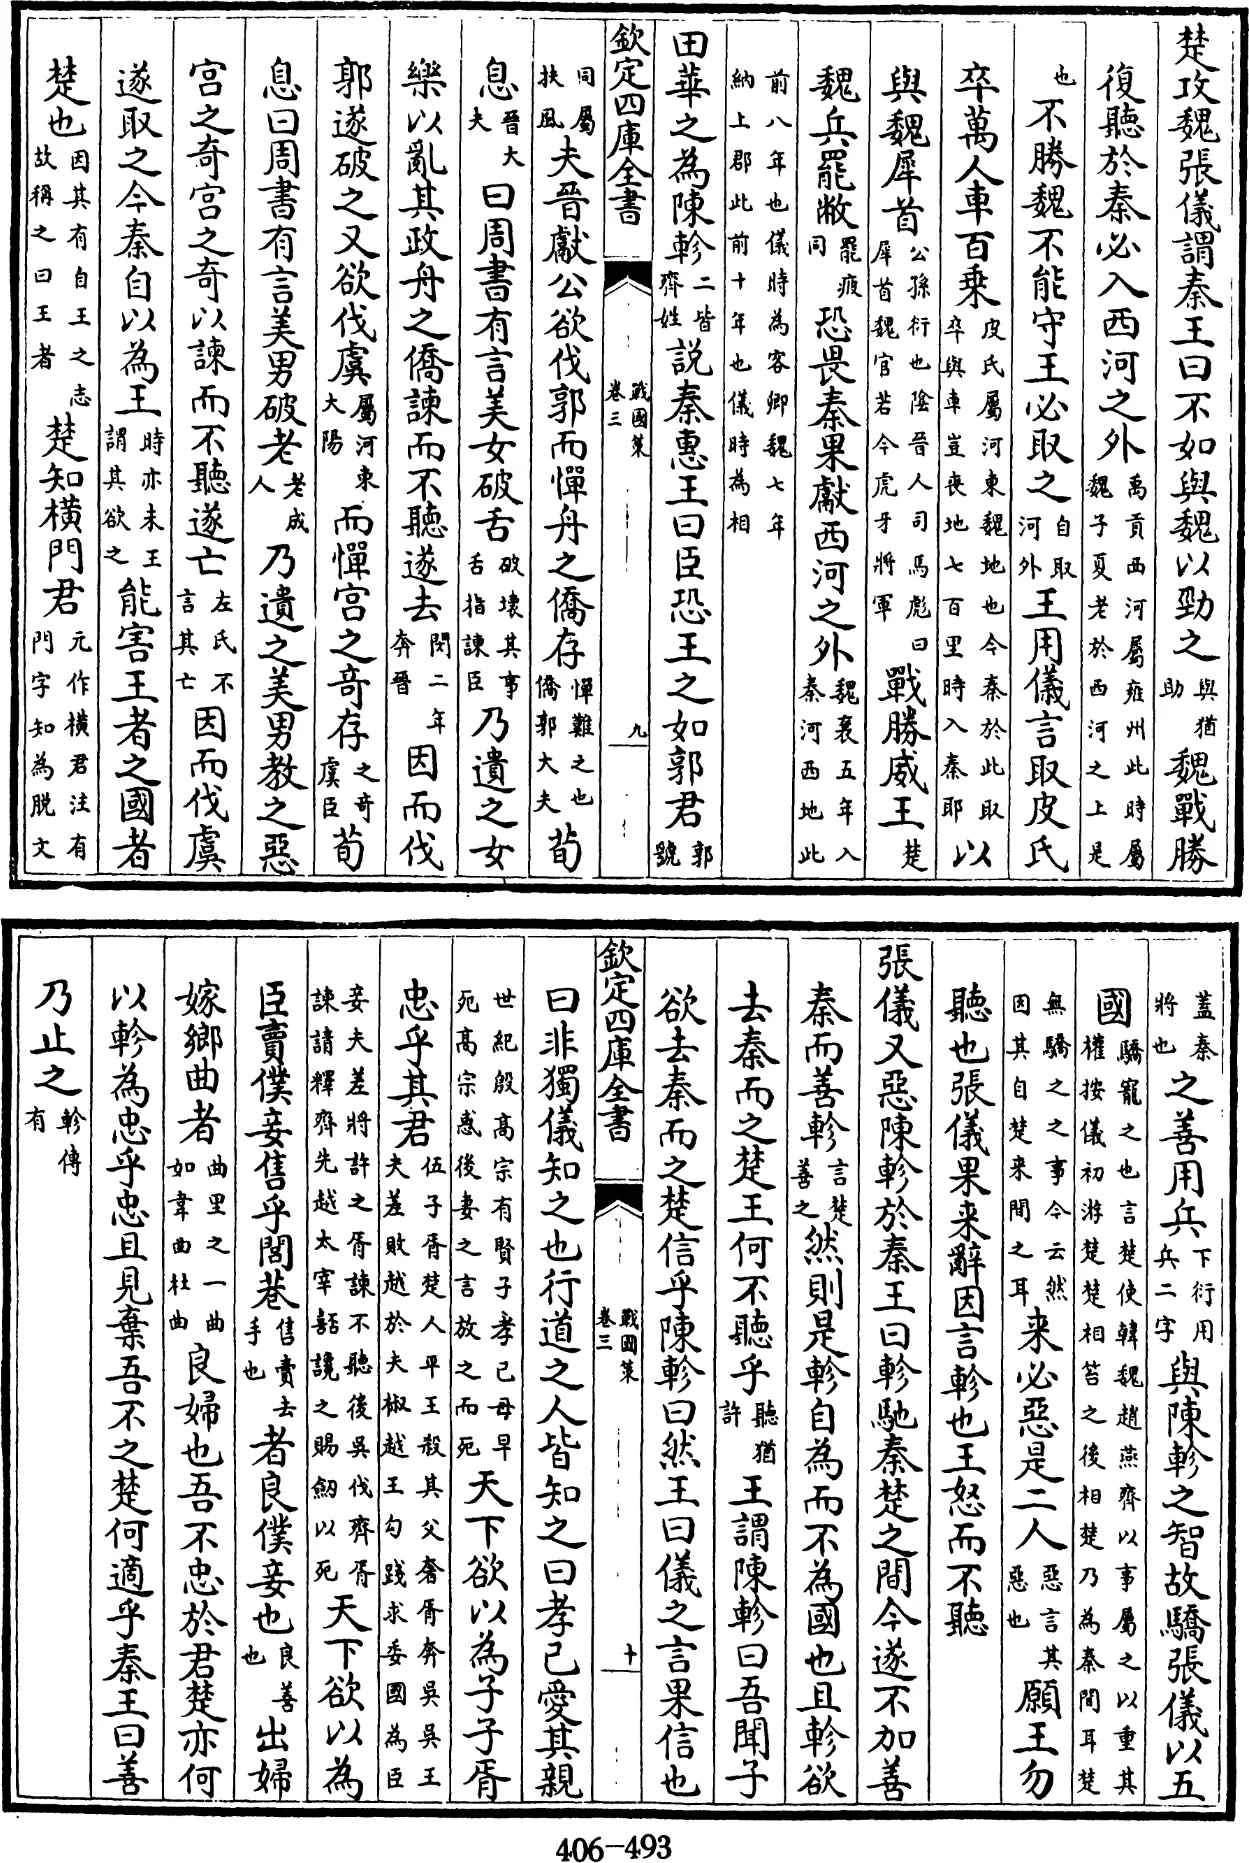 楚攻魏張儀謂秦王曰不如與魏以勁之與猶助魏戰勝
復聽於秦必入西河之外禹貢西河屬雍州此時屬魏子夏老於西河之上是
也不勝魏不能守王必取之自取河外王用儀言取皮氏
卒萬人車百乗皮氏屬河東魏地也今秦於此取卒與車豈喪地七百里時入秦耶以
與魏犀首公孫衍也陰晉人司馬彪曰犀首魏官若今虎牙將軍戰勝威王楚
魏兵罷敝罷疲同恐畏秦果獻西河之外魏襄五年入秦河西地此
前八年也儀時為客卿魏七年納上郡此前十年也儀時為相
田華之為陳軫二皆齊姓説秦惠王曰臣恐王之如郭君郭號
欽定四庫全書
戰國策
卷三
九
同屬扶風夫晉獻公欲伐郭而憚舟之僑存憚難之也僑郭大夫荀
息晉大夫曰周書有言美女破舌破壞其事舌指諫臣乃遺之女
樂以亂其政舟之僑諫而不聽遂去閔二年奔晉因而伐
郭遂破之又欲伐虞屬河東大陽而憚宫之奇存之奇虞臣荀
息曰周書有言美男破老老成人乃遺之美男教之惡
宫之奇宫之奇以諫而不聽遂亡左氏不言其亡因而伐虞
遂取之今秦自以為王時亦未王謂其欲之能害王者之國者
楚也因其有自王之志故稱之曰王者楚知橫門君元作橫君注有門字知為脱文
蓋秦將也之善用兵下衍用兵二字與陳軫之智故驕張儀以五
國驕寵之也言楚使韓魏趙燕齊以事屬之以重其權按儀初游楚楚相笞之後相楚乃為秦間耳楚
無驕之之事今云然因其自楚来間之耳来必惡是二人惡言其惡也願王勿
聽也張儀果来辭因言軫也王怒而不聽
張儀又惡陳軫於秦王曰軫馳秦楚之間今遂不加善
秦而善軫言楚善之然則是軫自為而不為國也且軫欲
去秦而之楚王何不聽乎聽猶許王謂陳軫曰吾聞子
欲去秦而之楚信乎陳軫曰然王曰儀之言果信也
欽定四庫全書
戰國策
卷三
十
曰非獨儀知之也行道之人皆知之曰孝己愛其親
世紀殷髙宗有賢子孝己母早死髙宗惑後妻之言放之而死天下欲以為子子胥
忠乎其君伍子胥楚人平王殺其父奢胥奔吳吳王夫差敗越於夫椒越王勾踐求委國為臣
妾夫差將許之胥諫不聽後吳伐齊胥諫請釋齊先越太宰嚭讒之賜劒以死天下欲以為
臣賣僕妾售乎閭巷售賣去手也者良僕妾也良善也出婦
嫁鄉曲者曲里之一曲如韋曲杜曲良婦也吾不忠於君楚亦何
以軫為忠乎忠且見棄吾不之楚何適乎秦王曰善
乃止之軫傳有
406-493